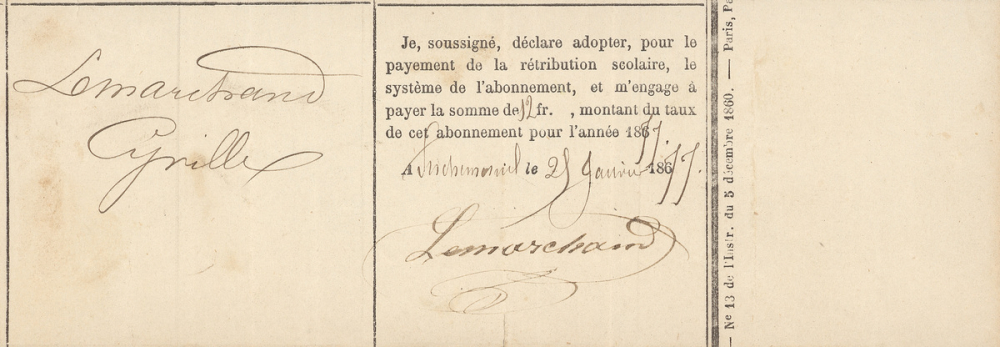 Lemarchand
Cyrille
Je, soussigné, déclare adopter, pour le
payement de la rétribution scolaire, le
système de l'abonnement, et m'engage à
payer la somme de 12 fr. , montant du taux
de cet abonnement pour l'année 1877.
A le 25 Janvier 1877.
Lemarchand
— No 13 de l'Instr. du 5 décembre 1860. — Paris,